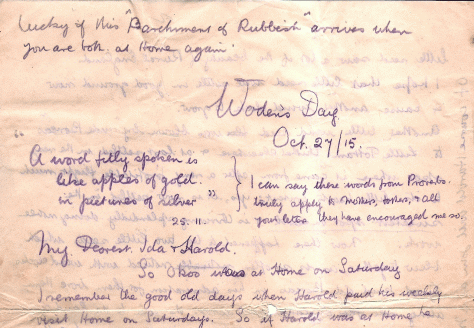 lucky if this "Parchment of Rubbish" arrives when
you are both at Home again.
Woden's Day
Oct. 27/15.
"A word fitly spoken is
like apples of gold
in pictures of silver"
25. 11.
I can say these words from Proverbs
truly apply to Mothers, & all
your letters they have encouraged me so.
My Dearest Ida & Harold.
So was at Home on Saturday
I remember the good old days when Harold paid his weekly
visit Home on Saturdays. So if Harold was at Home he